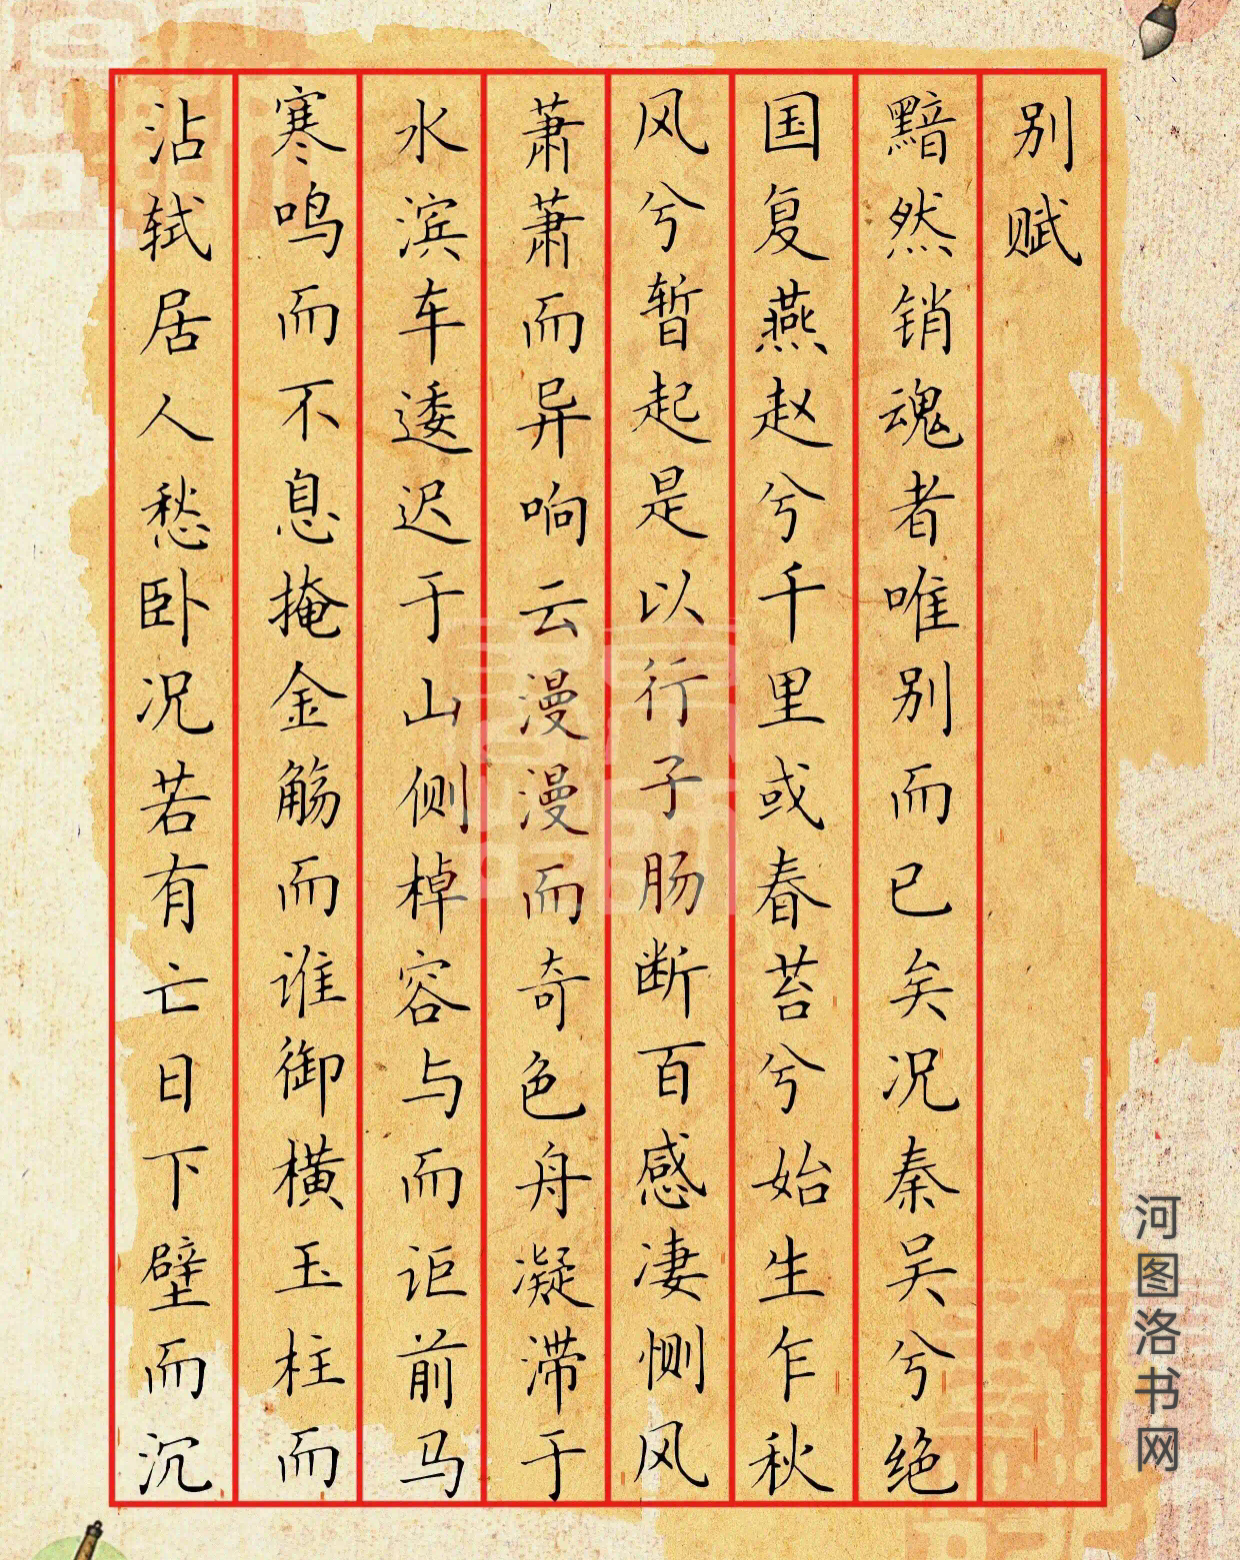 别赋
黯然销魂者唯别而已矣况秦吴兮绝
国复燕赵兮千里或春苔兮始生乍秋
风兮暂起是以行子肠断百感凄恻风
萧萧而异响云漫漫而奇色舟凝滞于
水滨车逶迟于山侧棹容与而讵前马
寒鸣而不息掩金觞而谁御横玉柱而
沾轼居人愁卧况若有亡日下壁而沉
河图洛书网